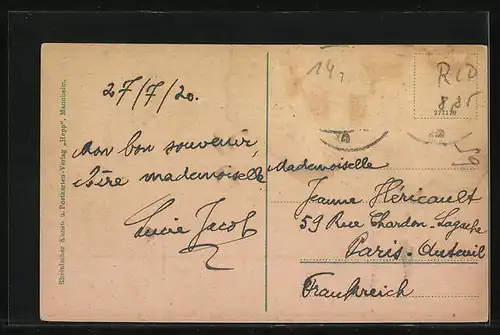 27/7/20.
Mon bon souvenir,
chère mademoiselle
Lucie Jacob
Rheinischer Kunst- u. Postkarten-Verlag „Hepp", Mannheim.
14,
RLD
8,85
Mademoiselle
Jeanne Héricault
59 Rue Chardon-Lagache
Paris-Auteuil
Frankreich